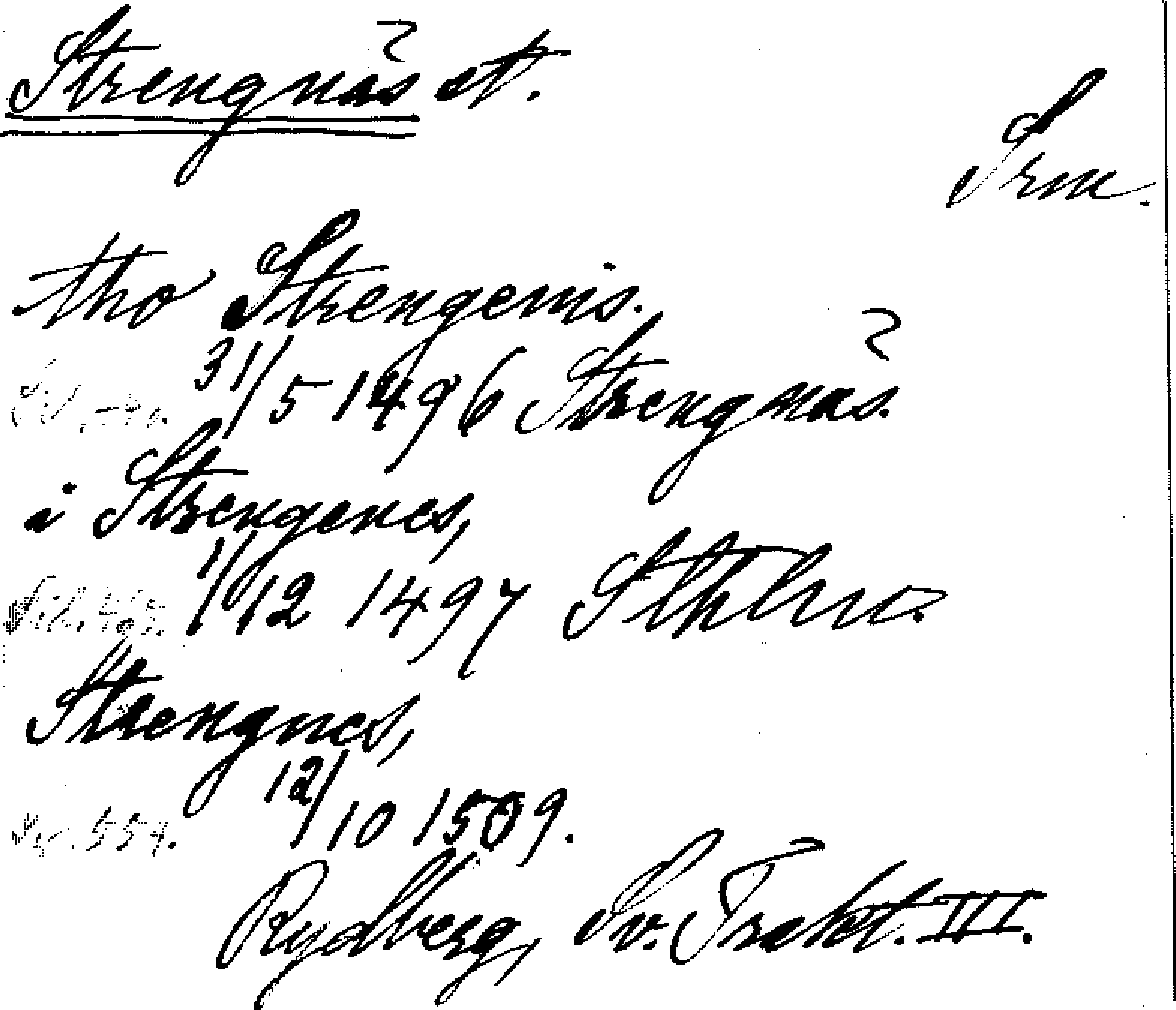 Strengnäs st.
Srm.
tho Strengenis.
31/5 1496 Strengnäs.
i Strengenes,
1/12 1497 Sthlm.
Strengnes,
12/10 1509.
Rydberg, Sv. Trakt. III.